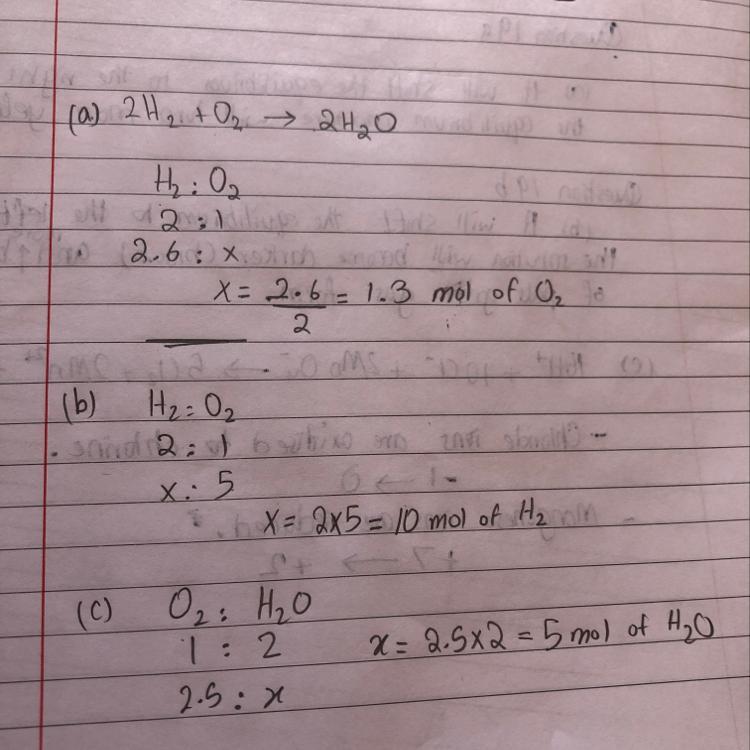 (a) 2H₂ + O₂ → 2H₂O
H₂ : O₂
2 : 1
2.6 : x
x = 2.6/2 = 1.3 mol of O₂
(b) H₂ = O₂
2 : 1
x : 5
x = 2x5 = 10 mol of H₂
(c) O₂ : H₂O
1 : 2 x = 2.5x2 = 5 mol of H₂O
2.5 : x